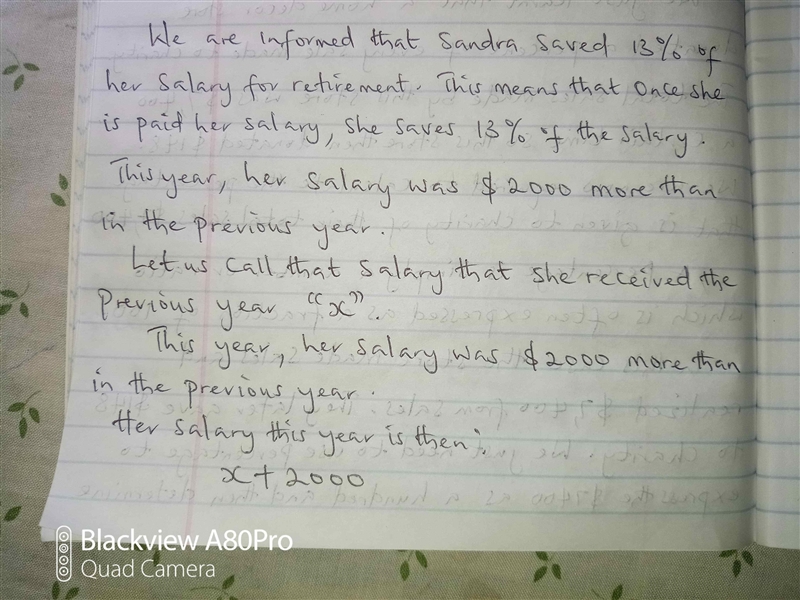 We are informed that Sandra saved 13% of
her salary for retirement. This means that once she
is paid her salary, she saves 13% of the salary.
This year, her salary was $ 2000 more than
in the previous year.
Let us call that salary that she received the
previous year "x".
This year, her salary was $ 2000 more than
in the previous year.
Her salary this year is then:
x + 2000
Blackview A80Pro
Quad Camera